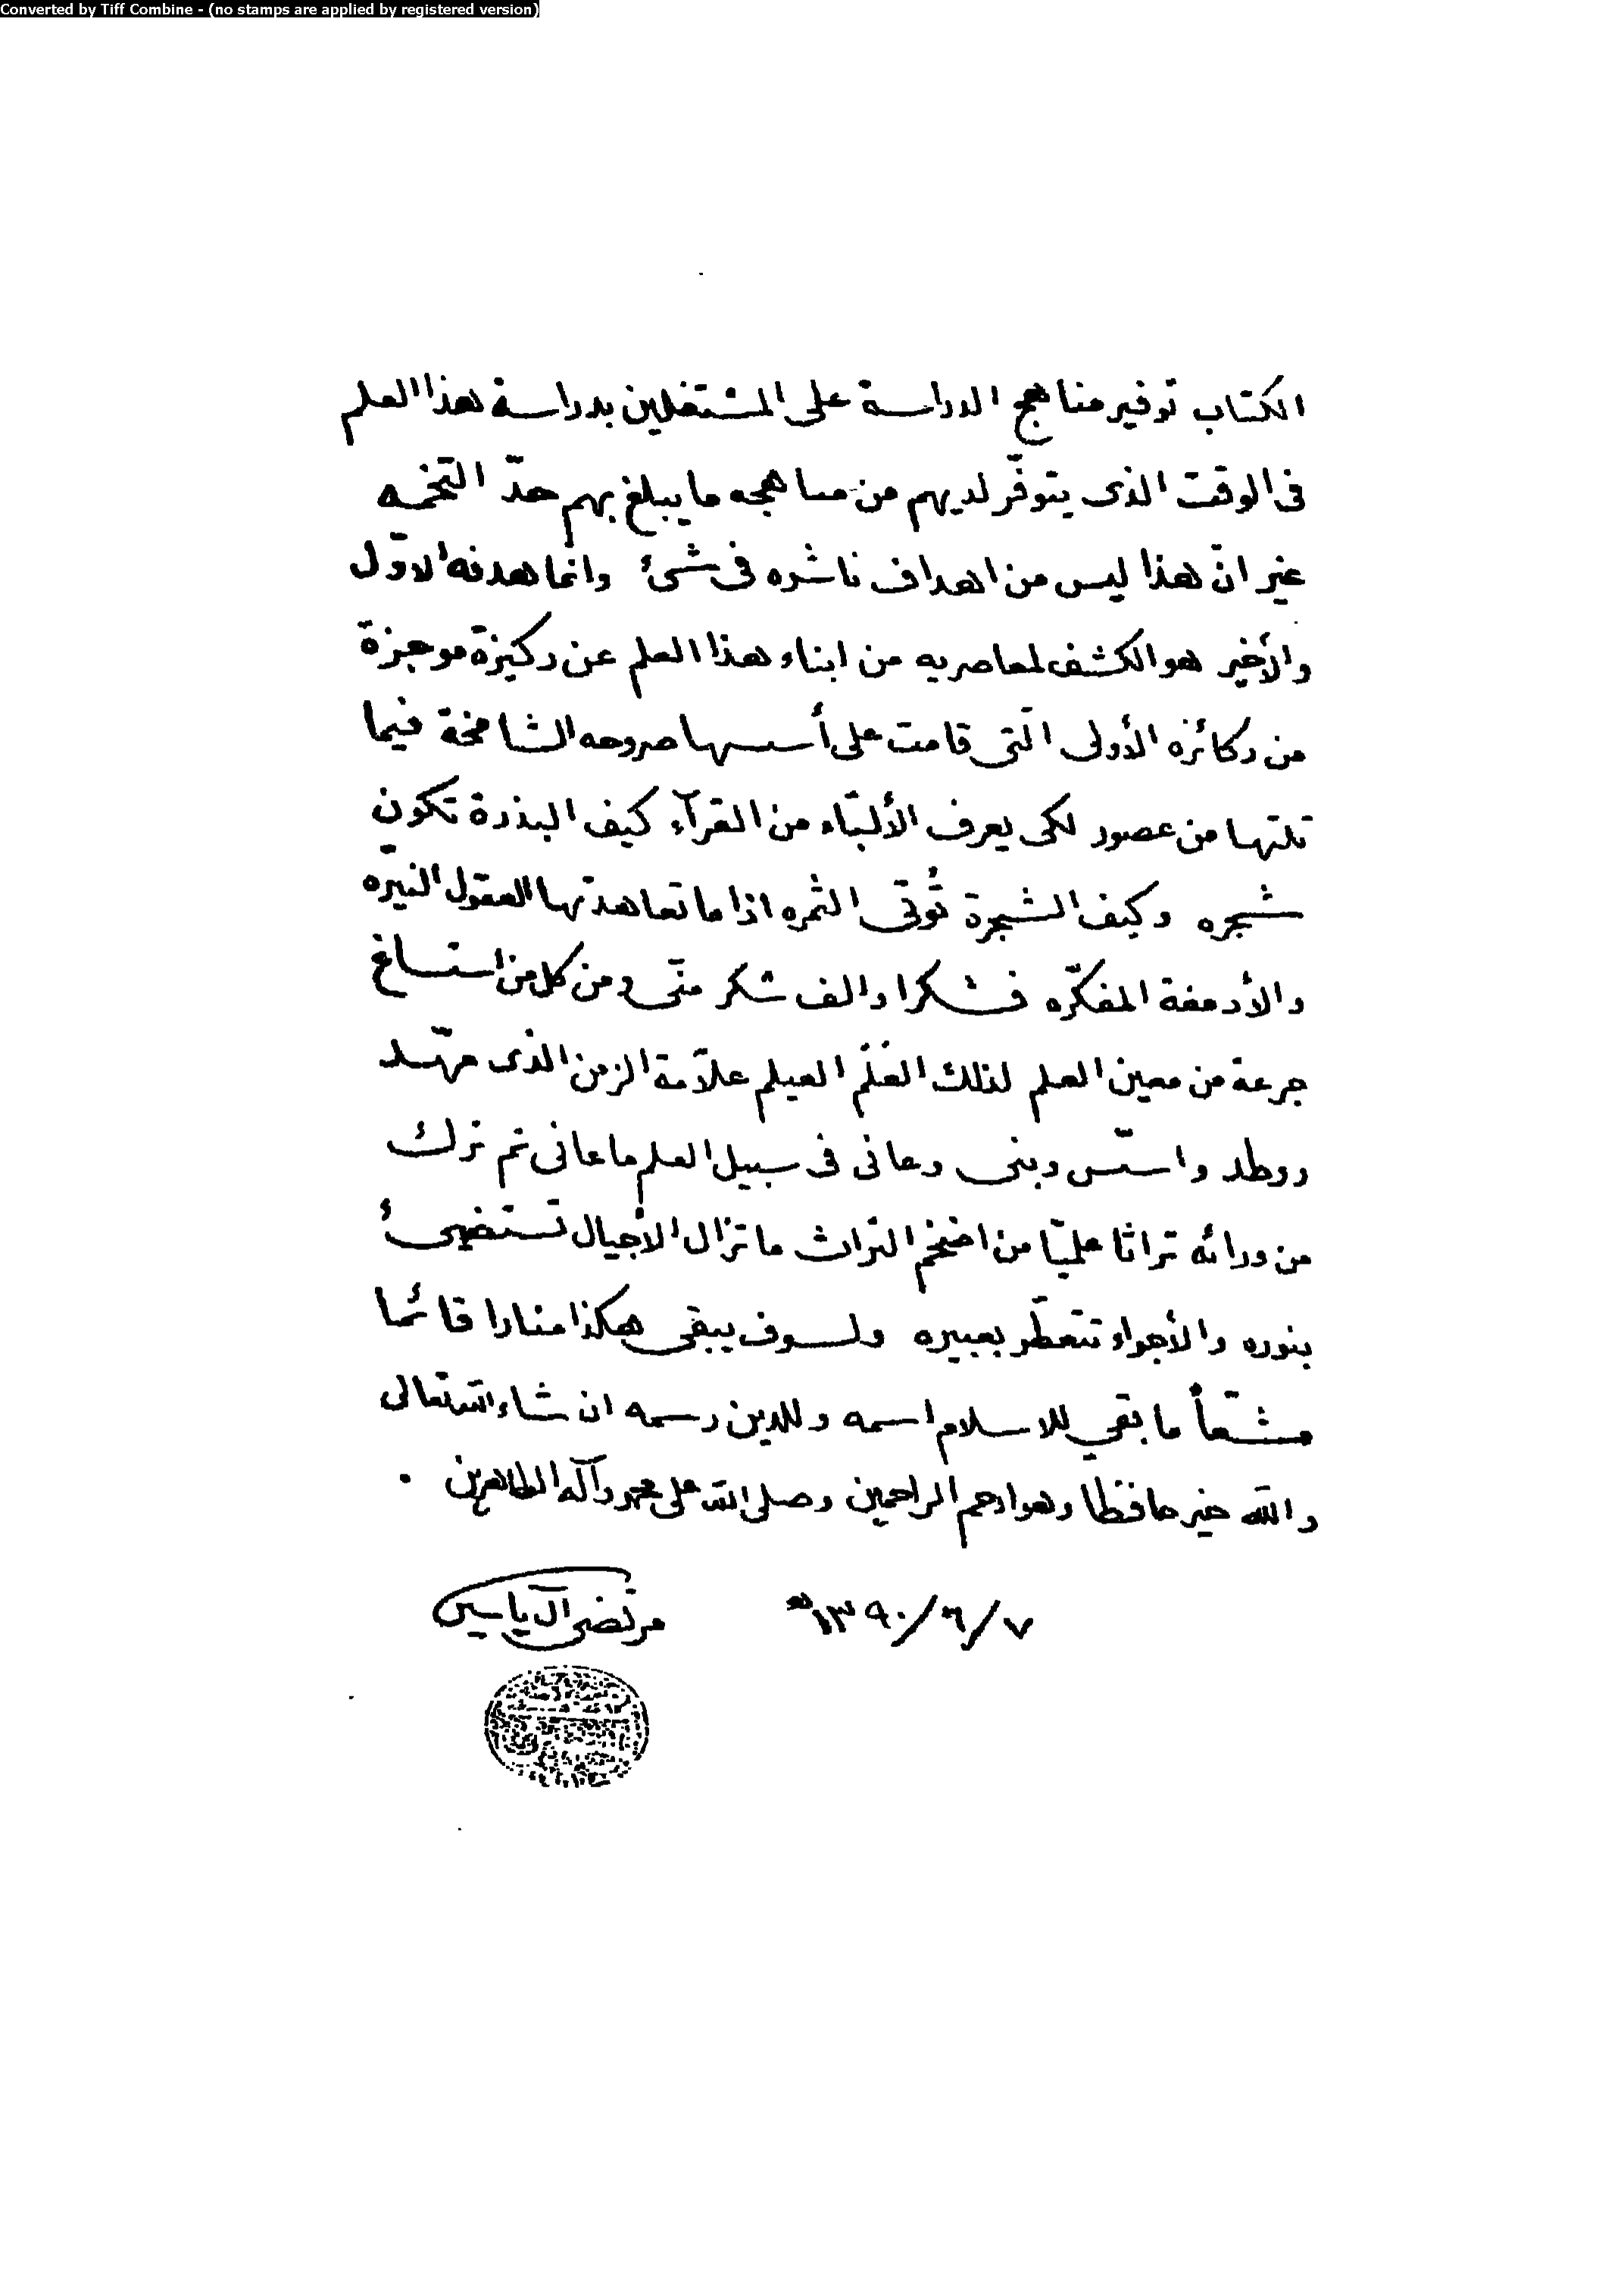 Converted by Tiff Combine - (no stamps are applied by registered version)
الكتاب توفير مناهج الدراسة على المشتغلين بدراسة هذا العلم
فى الوقت الذى يتوفّر لديهم من مناهجه ما يبلغ بهم حدّ التخمه
غير انّ هذا ليس من اهداف ناشره فى شىئ وانما هدفه الاوّل
والأخير هو الكشف لمعاصريه من ابناء هذا العلم عن ركيزة موجزة
من ركائزه الأولى الّتى قامت على أسسها صروحه الشامخة فيما
تلتها من عصور لكى يعرف الألبّاء من القرآء كيف البذرة تكون
شجره وكيف الشجرة تُوتى الثمره اذا ما تعاهدتها العقول النيّره
والأدمغة المفكّره فشكرا والف شكر منّى ومن كل من استساغ
جرعة من معين العلم لذلك العَلَم العيلم علاّمة الزمن الذى مهّد
ووطد واسّس وبنى وعانى فى سبيل العلم ما عانى ثم ترك
من ورائه تراثا علميّا من اضخم التراث ما تزال الأجيال تستضيئ
بنوره والأجواء تتعطّر بعبيره ولسوف يبقى هكذا منارا قائما
مشعّاً ما بقي للاسلام اسمه وللدين رسمه ان شاء الله تعالى
والله خير حافظا وهو ارحم الراحمين وصلى الله على محمد وآله الطاهرين .
٧/٦/١٣٩٠هـ
مرتضى آل ياسين